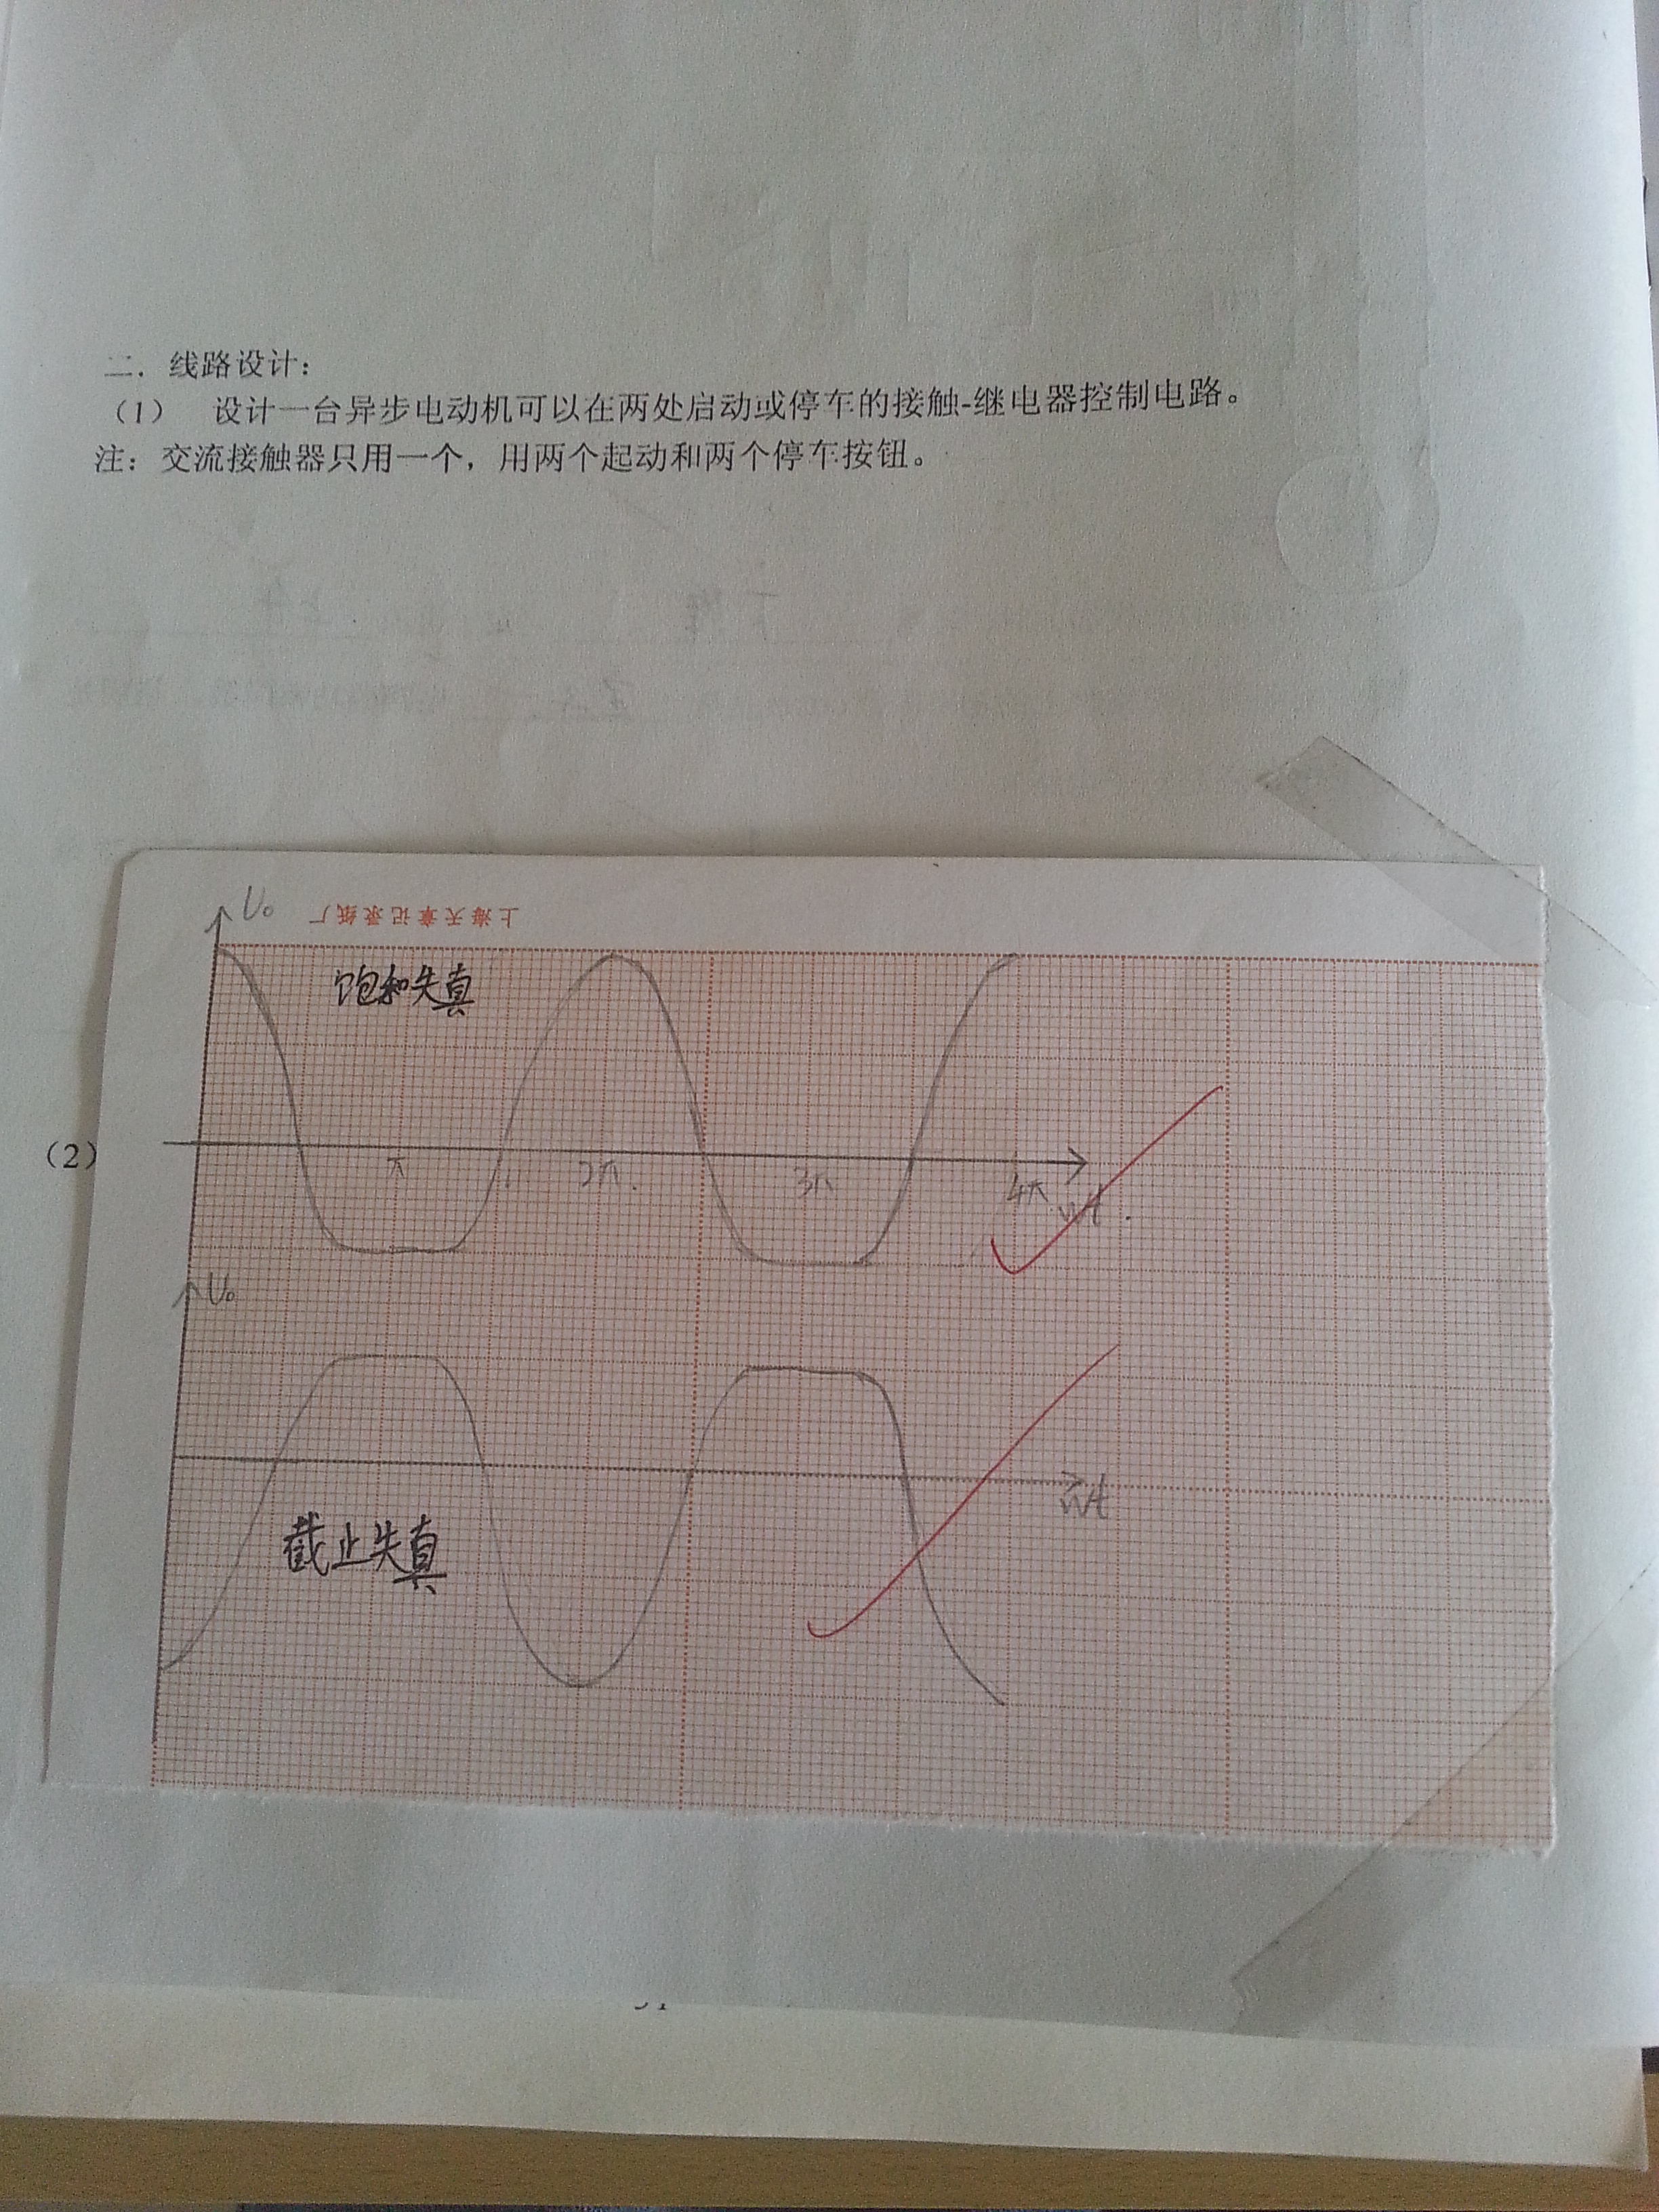 二. 线路设计:
(1) 设计一台异步电动机可以在两处启动或停车的接触-继电器控制电路。
注: 交流接触器只用一个, 用两个起动和两个停车按钮。
U₀
上海天章记录纸厂
饱和失真
(2)
π 2π. 3π 4π
wt.
U₀
wt
截止失真